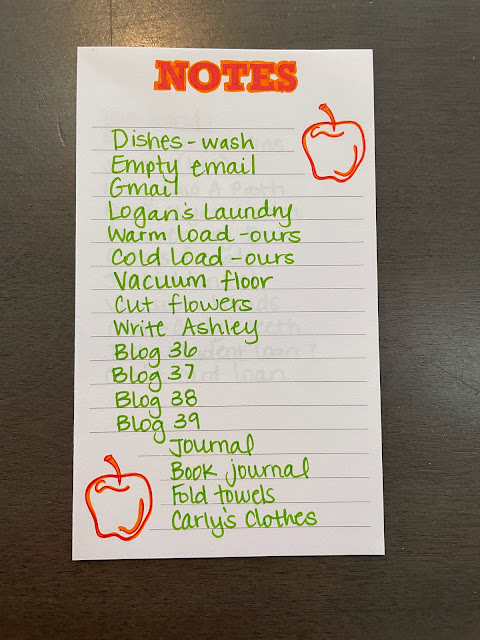 NOTES
Dishes - wash
Empty email
Gmail
Logan's Laundry
Warm Load - ours
Cold Load - ours
Vacuum floor
Cut flowers
Write Ashley
Blog 36
Blog 37
Blog 38
Blog 39
Journal
Book journal
Fold towels
Carly's Clothes